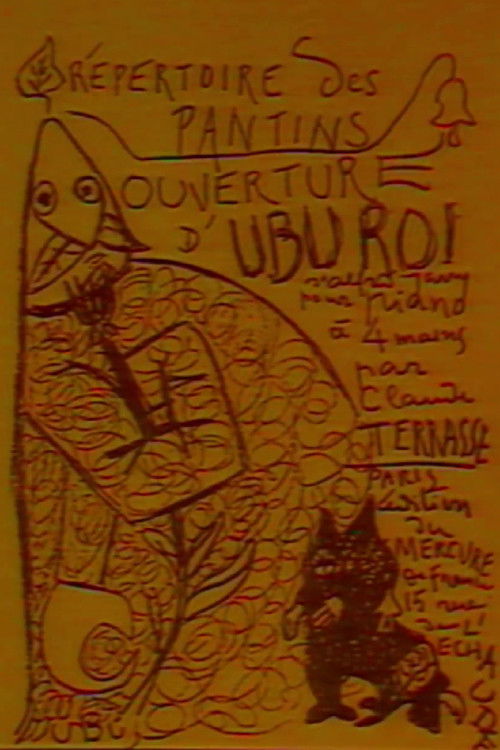 RÉPERTOIRE Des
PANTINS
OUVERTURE
D'UBU ROI
d'Alfred Jarry
pour piano
à 4 mains
par
Claude
TERRASSE
PARIS
édition
du
MERCURE
de France
15 rue
de L'
ECHAUDÉ